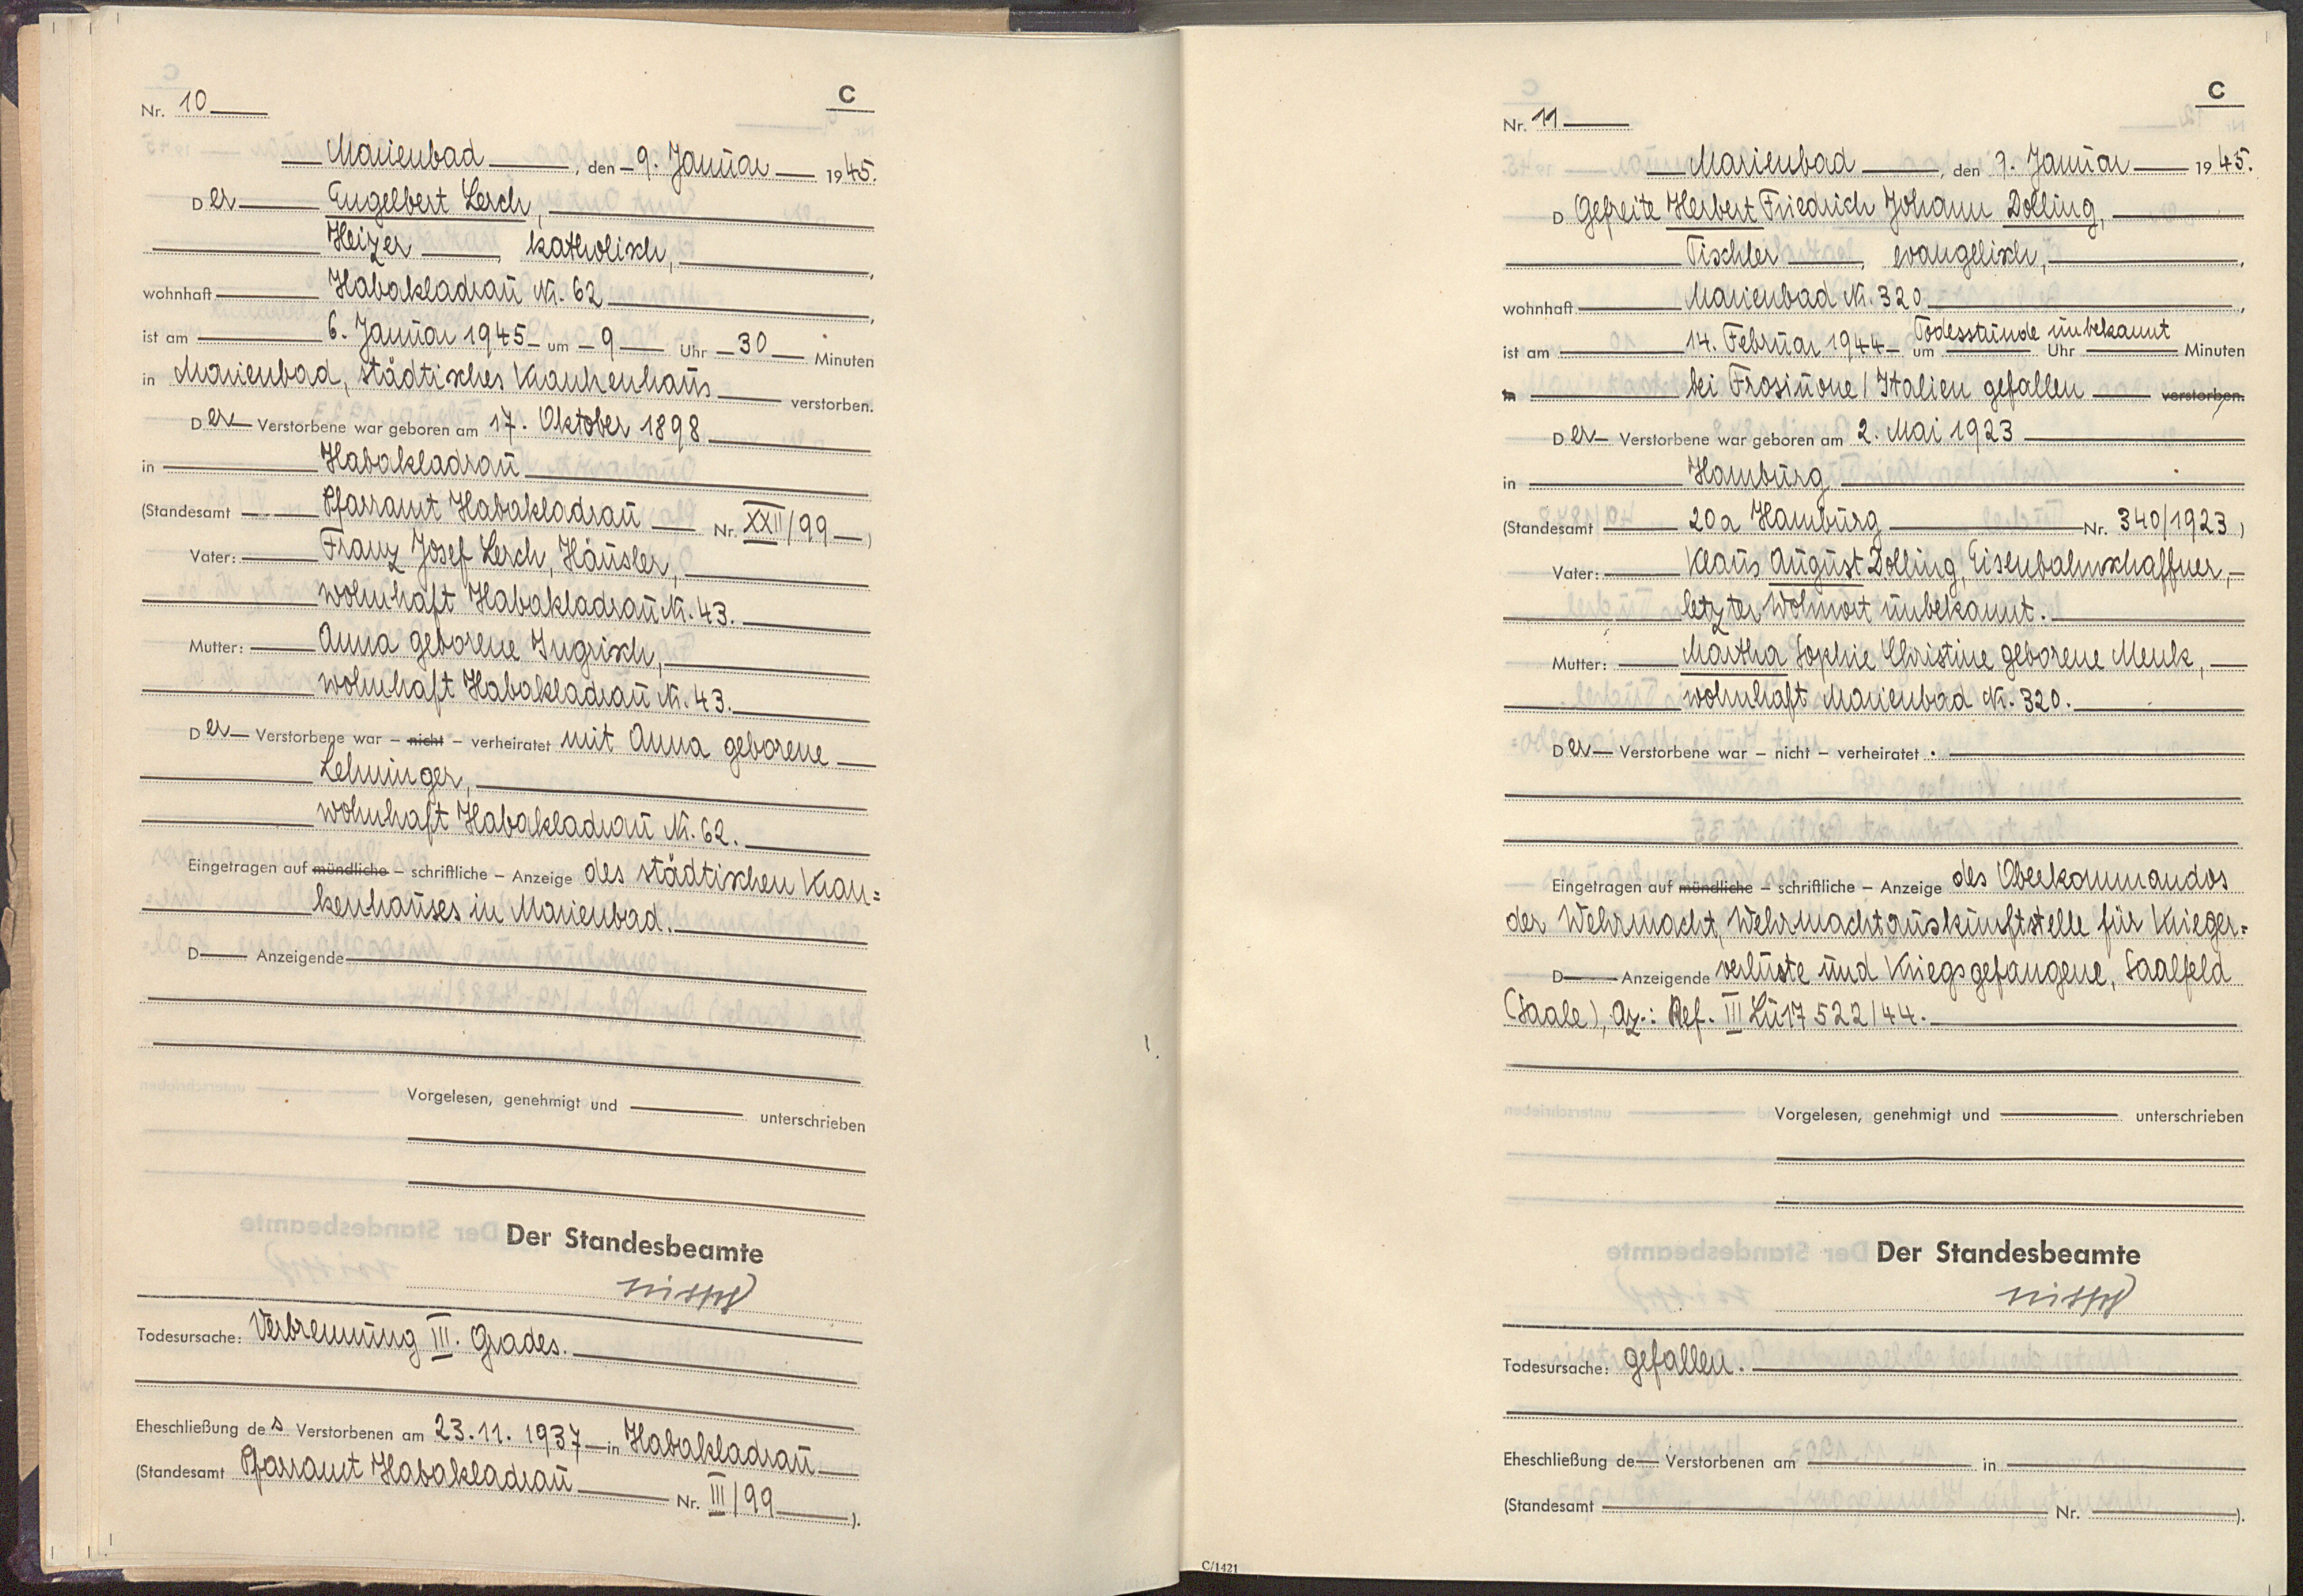 Nr. 10
C
Marienbad, den 9. Januar 1945.
Der Engelbert Lerch,
Heizer, katholisch,
wohnhaft Habakladrau Nr. 62,
ist am 6. Januar 1945 um 9 Uhr 30 Minuten
in Marienbad, städtisches Krankenhaus verstorben.
Der Verstorbene war geboren am 17. Oktober 1898
in Habakladrau
(Standesamt Pfarramt Habakladrau Nr. XXII/99)
Vater: Franz Josef Lerch, Häusler,
wohnhaft Habakladrau Nr. 43.
Mutter: Anna geborene Ingrisch,
wohnhaft Habakladrau Nr. 43.
Der Verstorbene war – nicht – verheiratet mit Anna geborene
Lehninger,
wohnhaft Habakladrau Nr. 62.
Eingetragen auf mündliche – schriftliche – Anzeige des städtischen Kran=
kenhauses in Marienbad.
D Anzeigende
Vorgelesen, genehmigt und unterschrieben
Der Standesbeamte
Todesursache: Verbrennung III. Grades.
Eheschließung des Verstorbenen am 23.11.1937 in Habakladrau
(Standesamt Pfarramt Habakladrau Nr. III/99).
Nr. 11
C
Marienbad, den 9. Januar 1945.
D Gefreite Herbert Friedrich Johann Dolling,
Tischler, evangelisch,
wohnhaft Marienbad Nr. 320,
Todesstunde unbekannt
ist am 14. Februar 1944 um Uhr Minuten
in bei Frosinone / Italien gefallen verstorben.
Der Verstorbene war geboren am 2. Mai 1923
in Hamburg
(Standesamt 20a Hamburg Nr. 340/1923)
Vater: Klaus August Dolling, Eisenbahnschaffner,
letzter Wohnort unbekannt.
Mutter: Martha Sophie Christine geborene Menk,
wohnhaft Marienbad Nr. 320.
Der Verstorbene war – nicht – verheiratet.
Eingetragen auf mündliche – schriftliche – Anzeige des Oberkommandos
der Wehrmacht, Wehrmachtauskunftstelle für Krieger=
D Anzeigende verluste und Kriegsgefangene, Saalfeld
(Saale), Az.: Ref. III Lü 17 522/44.
Vorgelesen, genehmigt und unterschrieben
Der Standesbeamte
Todesursache: gefallen.
Eheschließung de Verstorbenen am in
(Standesamt Nr. ).
C/1421